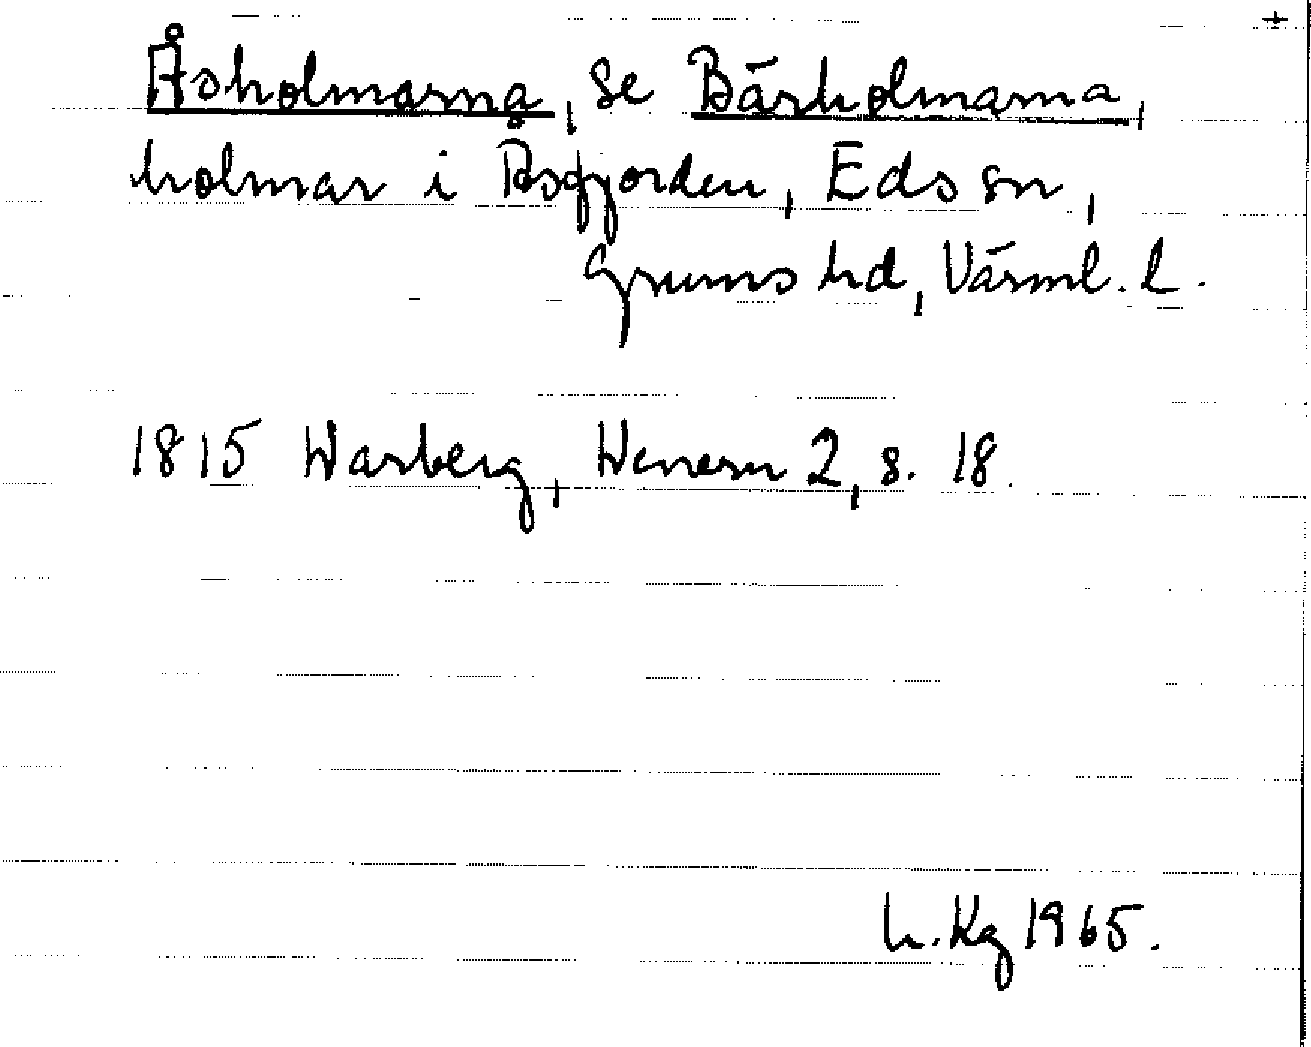 Åsholmarna, se Bärholmarna,
holmar i Åsfjorden, Eds sn,
Grums hd, Värml. l.
1815 Warberg, Wenern 2, s. 18.
h. Kg 1965.